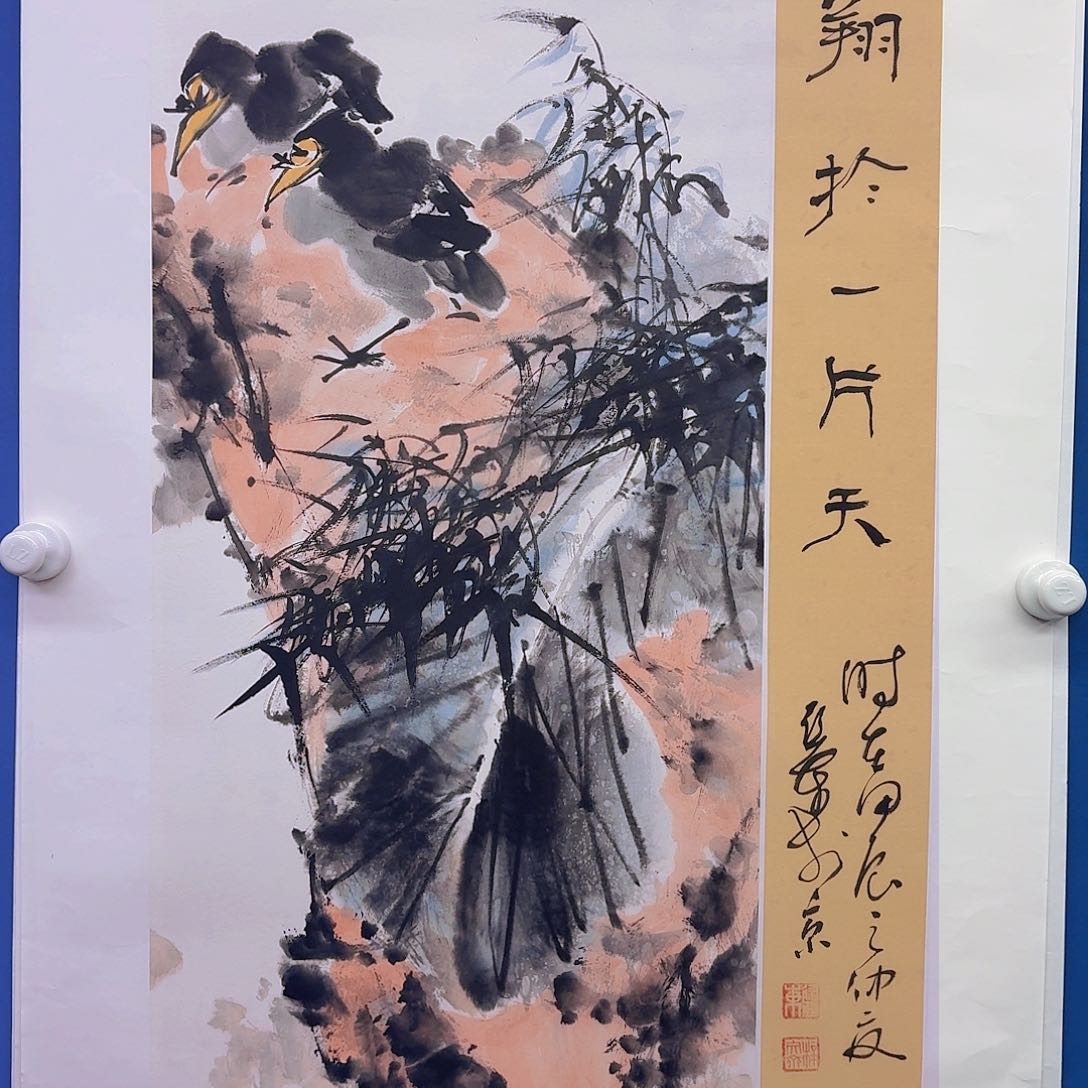 翔於一片天
时在甲辰之仲夏
于京